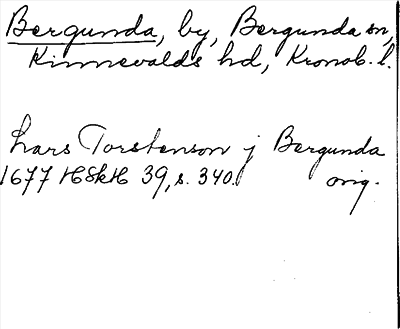 Bergunda, by, Bergunda sn,
Kinnevalds hd, Kronob. l.
Lars Torstenson j Bergunda
1677 HSkH 39, s. 340. orig.